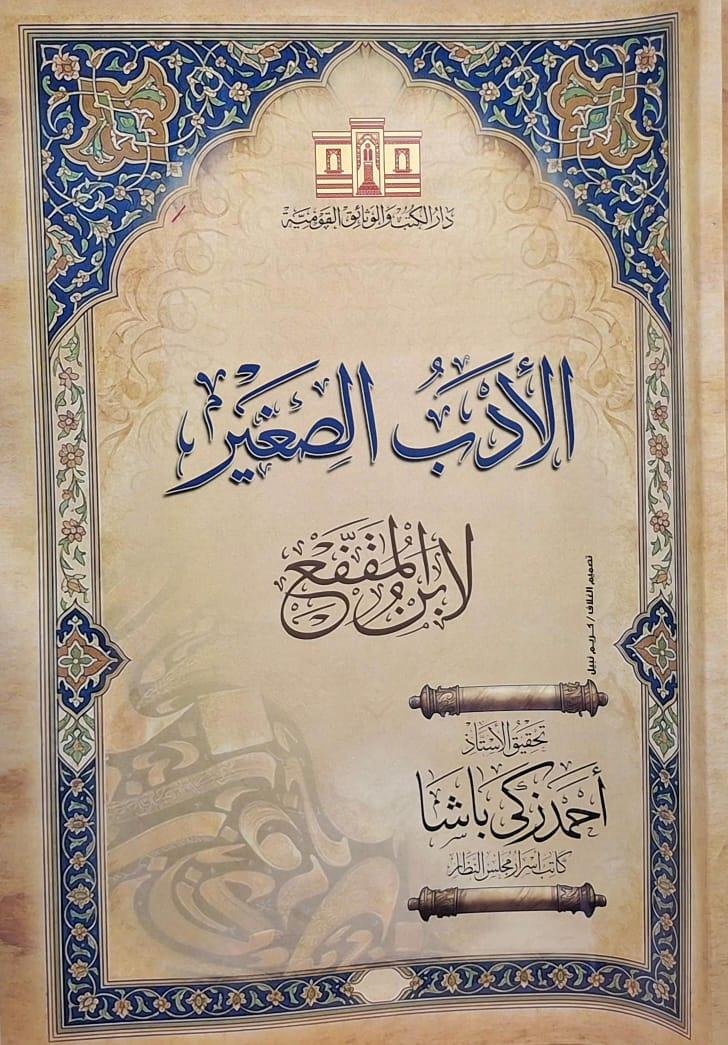 دار الكتب والوثائق القومية
الأدبُ الصغير
لابن المقفع
تصميم الغلاف / كريم نبيل
تحقيق الأستاذ
أحمد زكي باشا
كاتب أسرار مجلس النظار